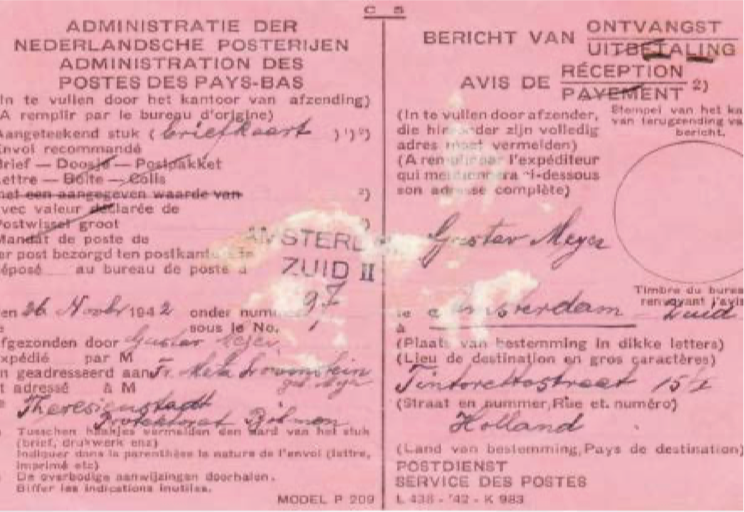 C 5
ADMINISTRATIE DER
NEDERLANDSCHE POSTERIJEN
ADMINISTRATION DES
POSTES DES PAYS-BAS
(In te vullen door het kantoor van afzending)
(A remplir par le bureau d'origine)
Aangeteekend stuk (briefkaart )¹)²)
Envoi recommandé
Brief — Doosje — Postpakket
Lettre — Boîte — Colis
met een aangegeven waarde van ²)
avec valeur déclarée de
Postwissel groot ²)
Mandat de poste de
per post bezorgd ten postkantore
déposé au bureau de poste à
AMSTERD
ZUID II
den 26 Novbr 1942 onder nummer 97
le sous le No.
afgezonden door Gustav Meyer
expédié par M
en geadresseerd aan Fr. Meta
et adressé à M geb. Meyer
Theresienstadt
Protektorat Böhmen
Tusschen haakjes vermelden den aard van het stuk
(brief, drukwerk enz)
Indiquer dans la parenthèse la nature de l'envoi (lettre,
imprimé etc)
De overbodige aanwijzingen doorhalen.
Biffer les indications inutiles.
MODEL P 209
BERICHT VAN ONTVANGST
UITBETALING
AVIS DE RÉCEPTION
PAYEMENT ²)
(In te vullen door afzender,
die hieronder zijn volledig
adres moet vermelden)
(A remplir par l'expéditeur
qui mentionnera ci-dessous
son adresse complète)
Stempel van het ka
van terugzending va
bericht.
Gustav Meyer
Timbre du burea
renvoyant l'avis
te Amsterdam - Zuid
à
(Plaats van bestemming in dikke letters)
(Lieu de destination en gros caractères)
Tintorettostraat 15
(Straat en nummer, Rue et. numéro)
Holland
(Land van bestemming, Pays de destination)
POSTDIENST
SERVICE DES POSTES
L 438 - '42 - K 983